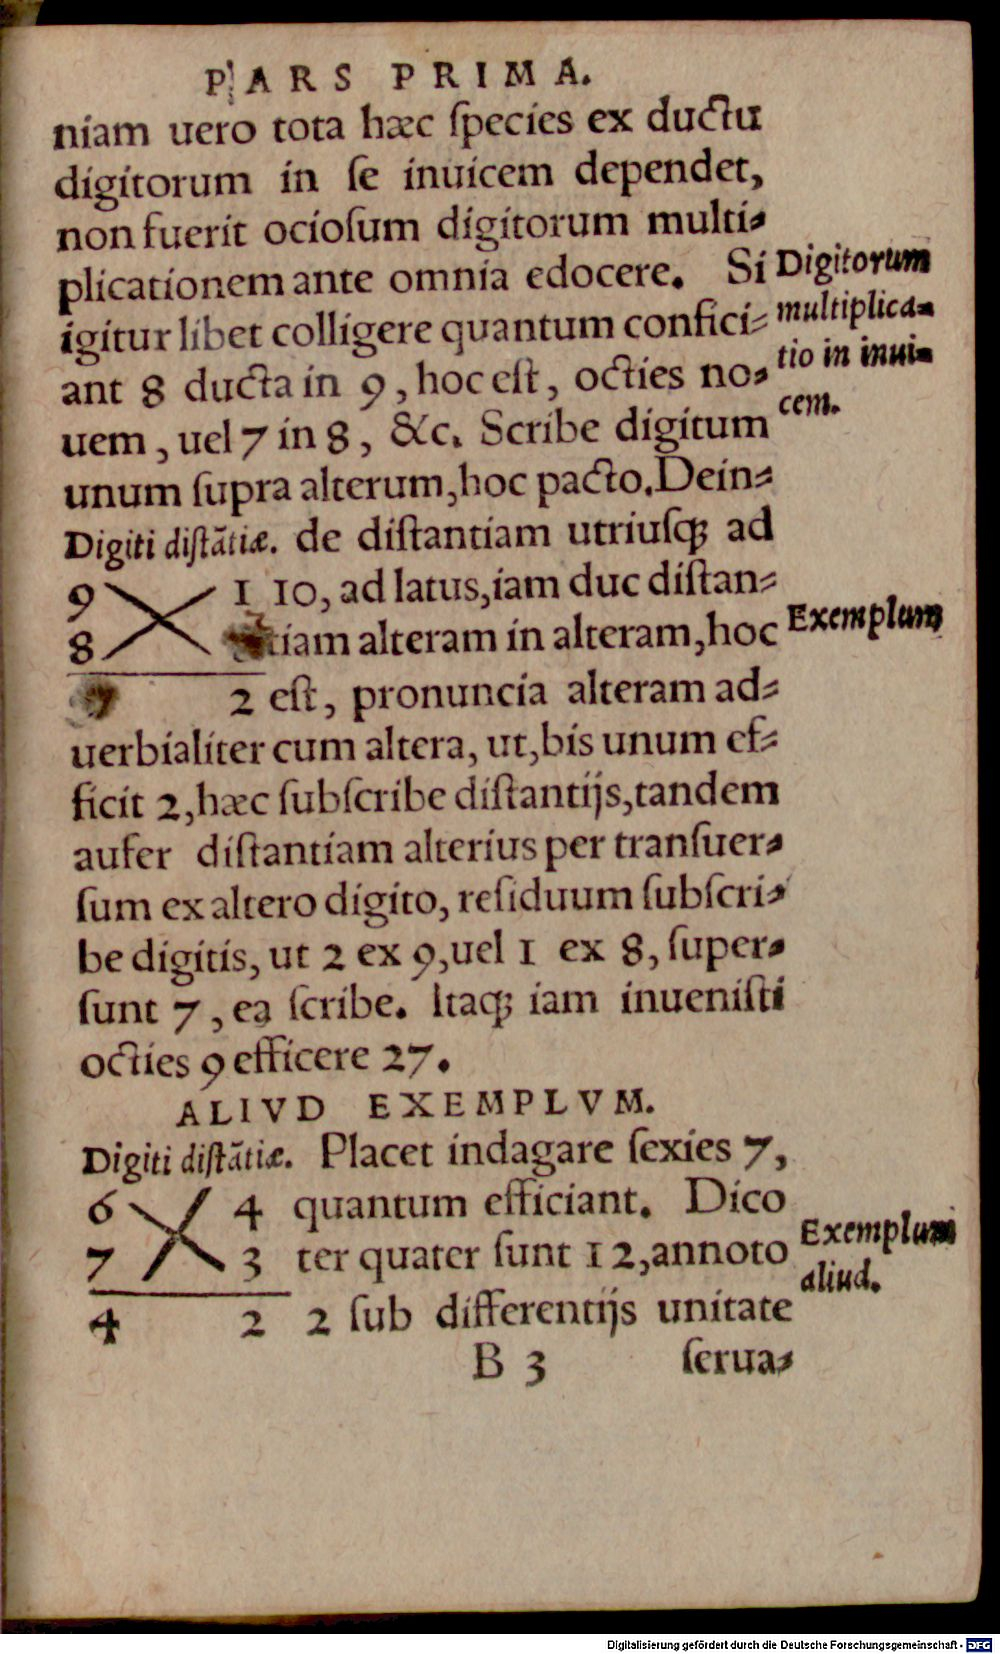 PARS PRIMA.
niam uero tota hæc ſpecies ex ductu
digitorum in ſe inuicem dependet,
non fuerit ocioſum digitorum multi⸗
plicationem ante omnia edocere. Si
igitur libet colligere quantum confici⸗
ant 8 ducta in 9, hoc eſt, octies no⸗
uem, uel 7 in 8, &c. Scribe digitum
unum ſupra alterum, hoc pacto. Dein⸗
Digitorum
multiplica⸗
tio in inui⸗
cem.
Digiti diſtãtiæ. de diſtantiam utriuſq; ad
9 1 10, ad latus, iam duc diſtan⸗
8 tiam alteram in alteram, hoc
Exemplum
7 2 eſt, pronuncia alteram ad⸗
uerbialiter cum altera, ut, bis unum ef⸗
ficit 2, hæc ſubſcribe diſtantijs, tandem
aufer diſtantiam alterius per tranſuer⸗
ſum ex altero digito, reſiduum ſubſcri⸗
be digitis, ut 2 ex 9, uel 1 ex 8, ſuper⸗
ſunt 7, ea ſcribe. Itaq; iam inueniſti
octies 9 efficere 27.
ALIVD EXEMPLVM.
Digiti diſtãtiæ. Placet indagare ſexies 7,
6 4 quantum efficiant. Dico
7 3 ter quater ſunt 12, annoto
Exemplum
aliud.
4 2 2 ſub differentijs unitate
B 3 ſerua⸗
Digitalisierung gefördert durch die Deutsche Forschungsgemeinschaft - DFG